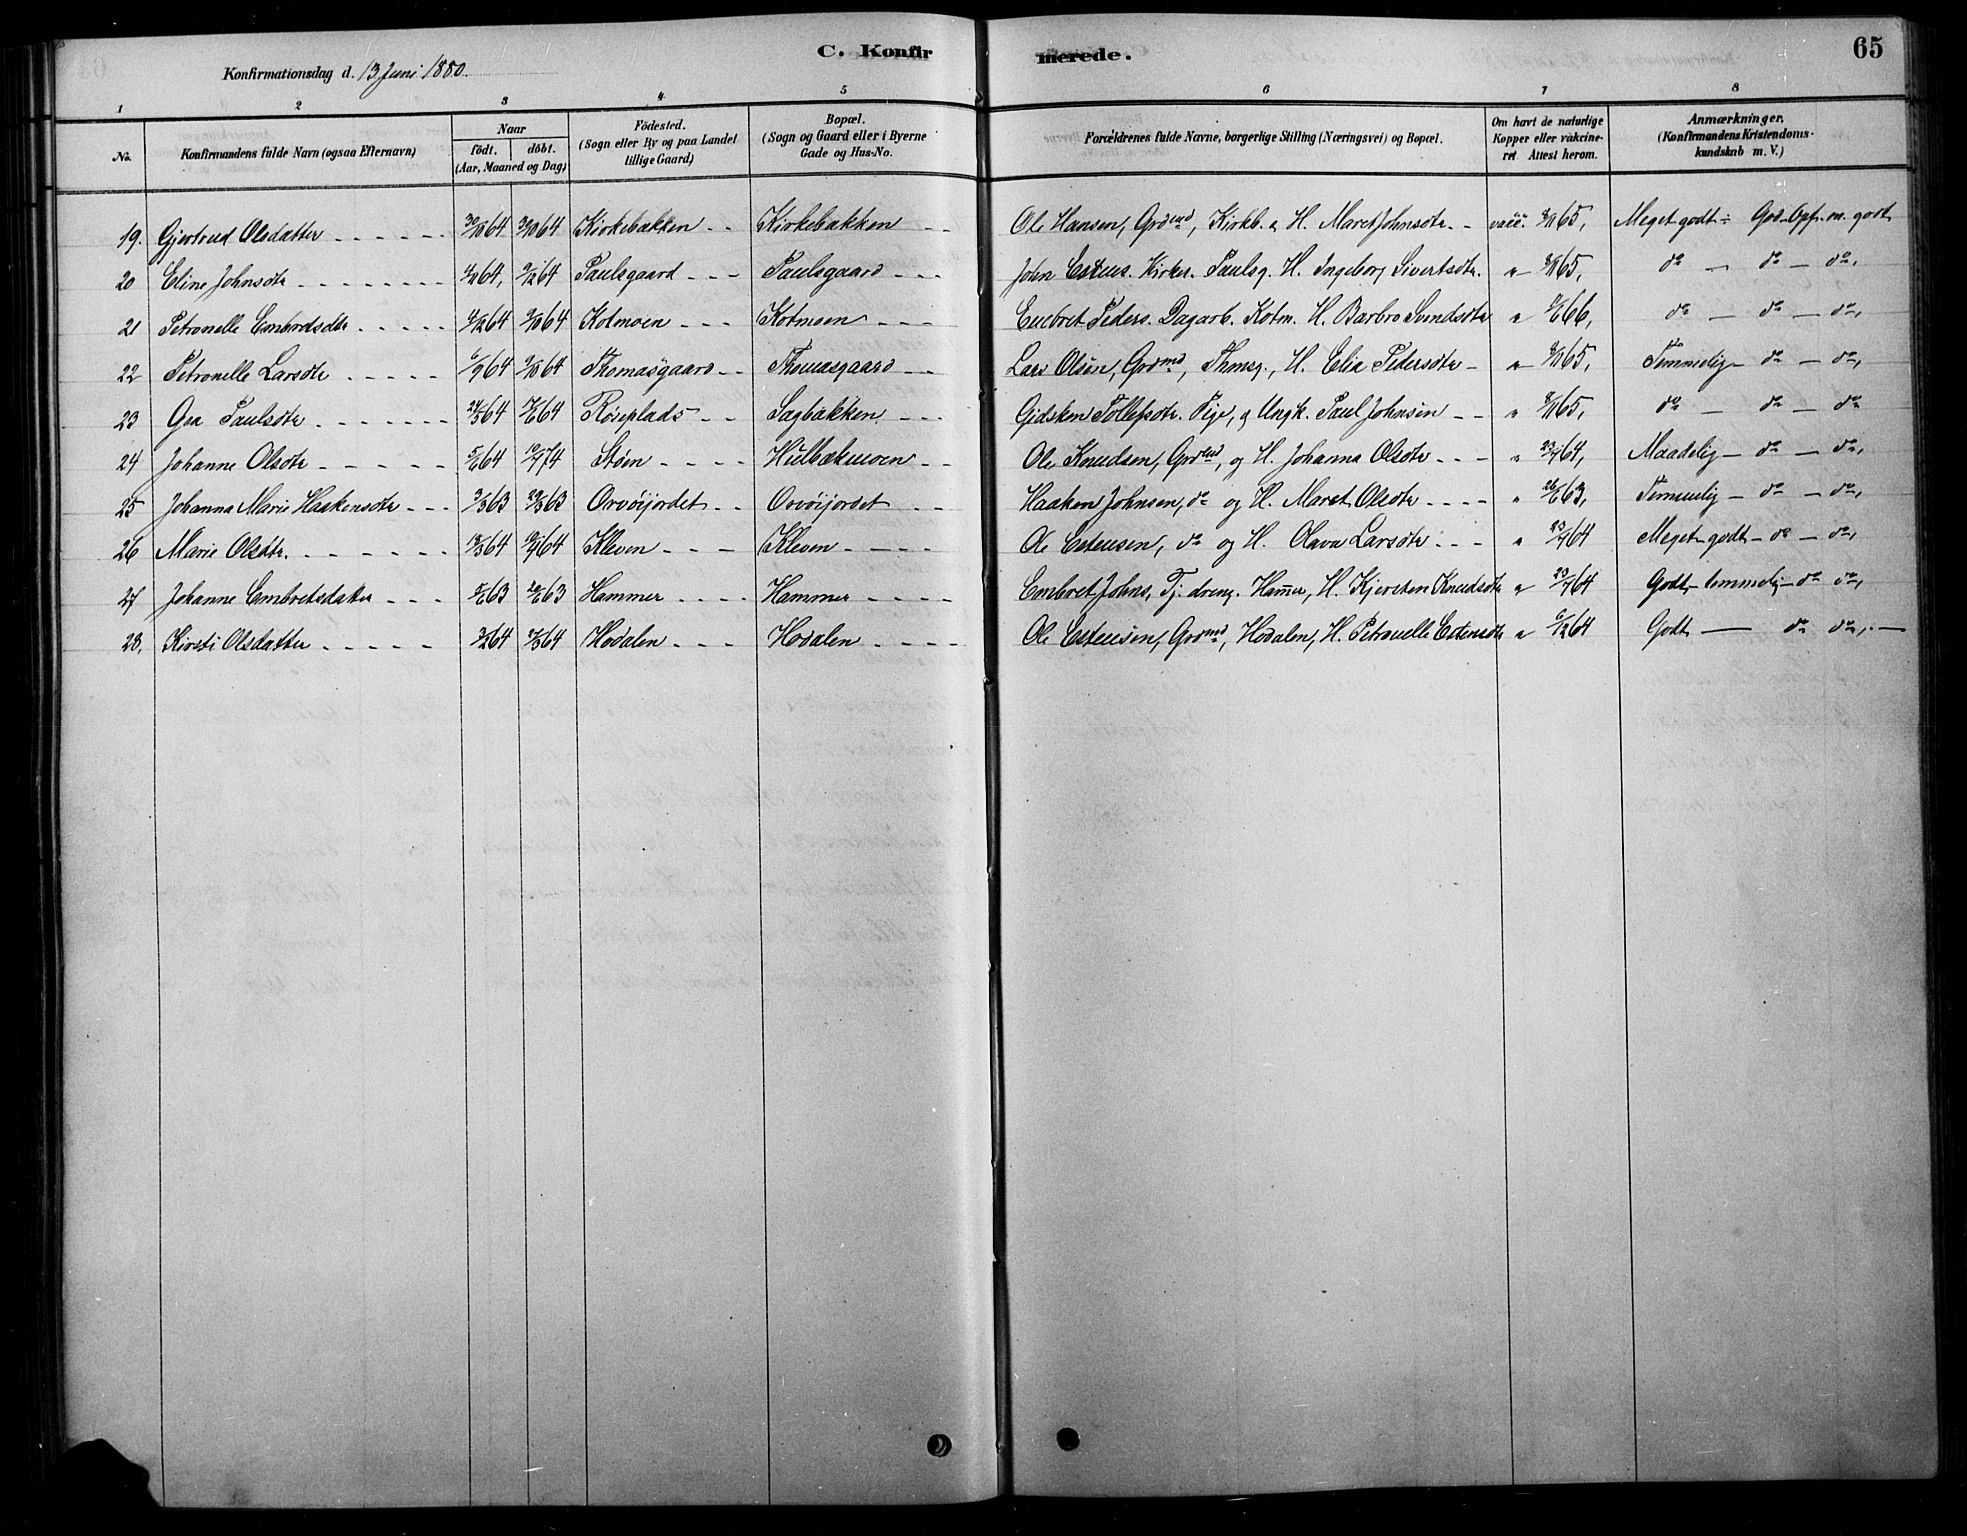 C. Konfirmerede.
65
Konfirmationsdag d. 13 Juni 1880.
1 2 3 4 5 6 7 8
No. Konfirmandens fulde Navn (ogsaa Efternavn) Naar födt. döbt. (Aar, Maaned og Dag) Födested. (Sogn eller By og paa Landet tillige Gaard) Bopæl. (Sogn og Gaard eller i Byerne Gade og Hus-No. Forældrenes fulde Navne, borgerlige Stilling (Næringsvei) og Bopæl. Om havt de naturlige Kopper eller vakcineret Attest herom. Anmærkninger, (Konfirmandens Kristendomskundskab m. V.)
19. Gjertrud Olsdatter 64 64 Kirkebakken Kirkebakken Ole Hansen, Grdmd, Kirkb. & H. Maret Johnsdtr. vacc. 65, Meget godt
20 Eline Johnsdtr 64, 64 Paulsgaard Paulsgaard John Estens. Kirker. Paulsg. H. Ingeborg Sivertsdtr. " 65, do — do — do,
21 Petronelle Embretsdtr 64 64 Kotmoen Kotmoen Embret Peders. Dagarb. Kotm. H. Barbro Svendsdtr " 66, do — do — do,
22 Petronelle Larsdtr 64 64 Thomasgaard Thomasgaard Lars Olsen, Grdmd, Thmsg., H. Elia Pedersdtr " 65, Temmelig — do — do,
23 Goa Paulsdtr 64 64 Røseplads Sagbakken Gidsken Tollefsdtr. Pige, & Ungk. Paul Johnsen " 65, do — do — do
24 Johanne Olsdtr 64 74 Støen Hulbækmoen Ole Knudsen, Grdmd, og H. Johanna Olsdtr " 64, Maadelig — do — do,
25 Johanna Marie Haakensdtr 63 63 Orvöijordet Orvöijordet Haaken Johnsen, do og H. Maret Olsdtr " 63, Temmelig — do — do,
26 Marie Olsdtr. 64 64 Kleven Kleven Ole Estensen, do og H. Olava Larsdtr " 64 Meget godt — do — do,
27 Johanne Embretsdatter 63 63 Hammer Hammer Embret Johns, Tj. dreng. Hamer, H. Kjersten Knudsdtr " 64 Godt temmelig — do do,
28. Kirsti Olsdatter 64 64 Hodalen Hodalen Ole Estensen, Grdmd, Hodalen, H. Petronelle Estensdtr " 64 Godt — do do,